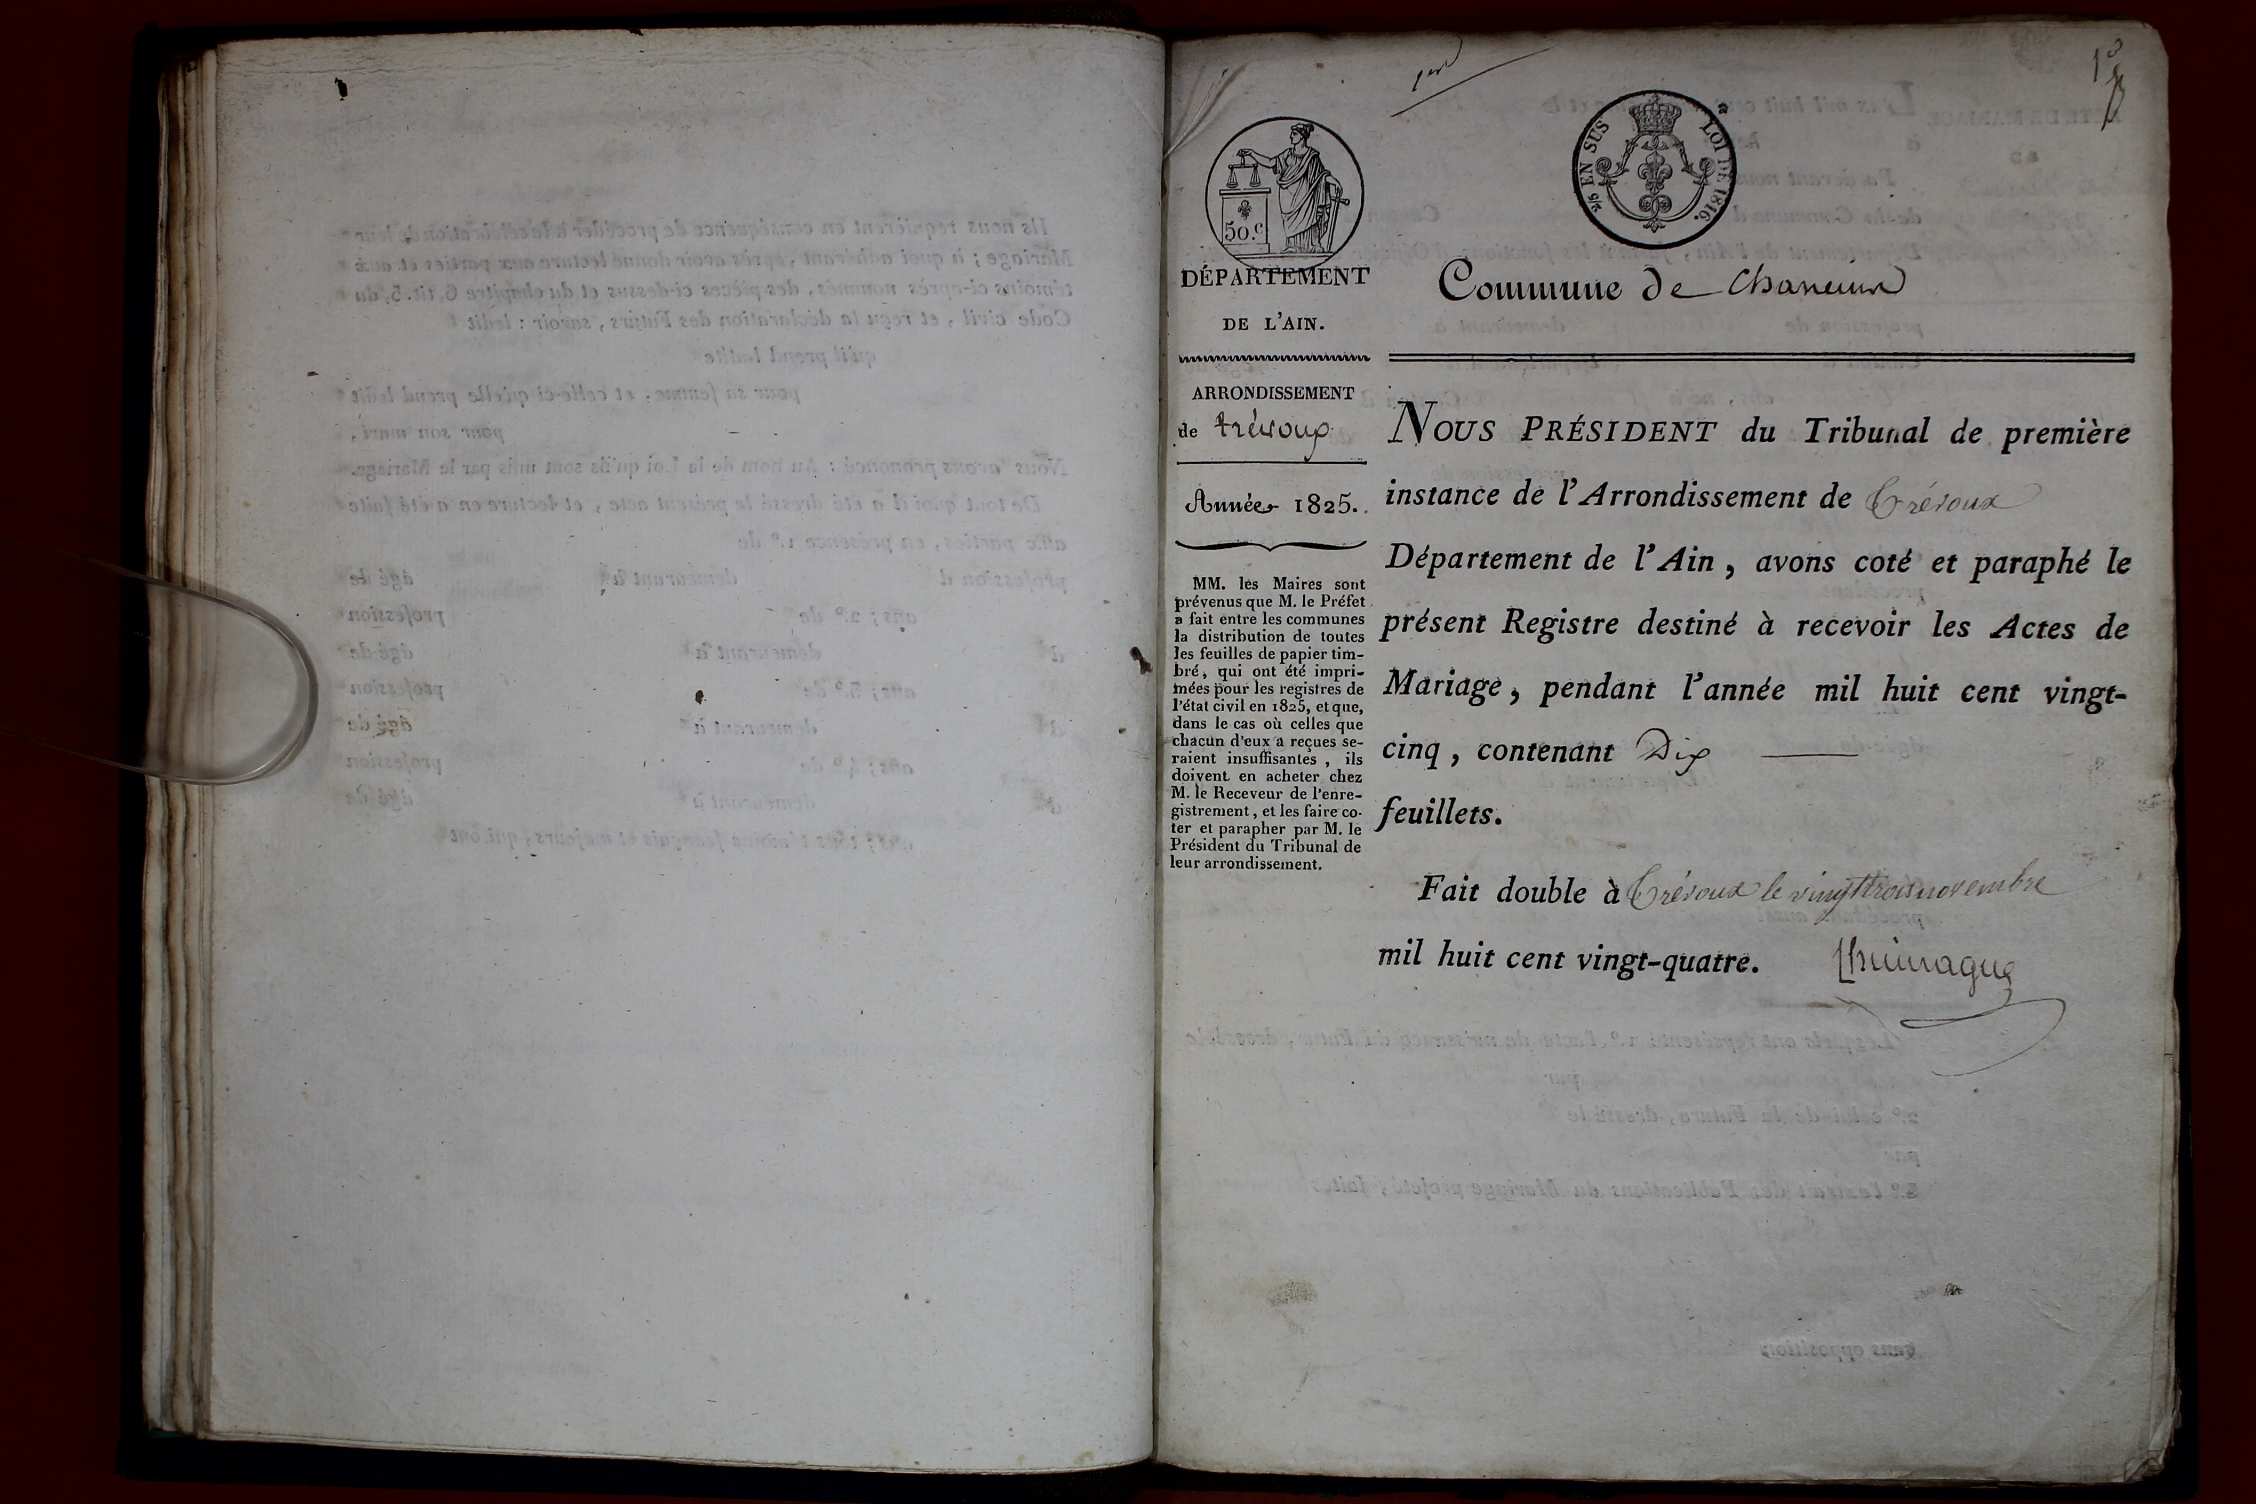 50.c
2/5 EN SUS LOI DE 1816.
DÉPARTEMENT
DE L'AIN.
Commune de
ARRONDISSEMENT
de trévoux
Année 1825.
MM. les Maires sont
prévenus que M. le Préfet
a fait entre les communes
la distribution de toutes
les feuilles de papier tim-
bré, qui ont été impri-
mées pour les registres de
l'état civil en 1825, et que,
dans le cas où celles que
chacun d'eux a reçues se-
raient insuffisantes, ils
doivent en acheter chez
M. le Receveur de l'enre-
gistrement, et les faire co-
ter et parapher par M. le
Président du Tribunal de
leur arrondissement.
NOUS PRÉSIDENT du Tribunal de première
instance de l'Arrondissement de Trévoux
Département de l'Ain, avons coté et paraphé le
présent Registre destiné à recevoir les Actes de
Mariage, pendant l'année mil huit cent vingt-
cinq, contenant Dix
feuillets.
Fait double à Trévoux le vingt trois novembre
mil huit cent vingt-quatre.